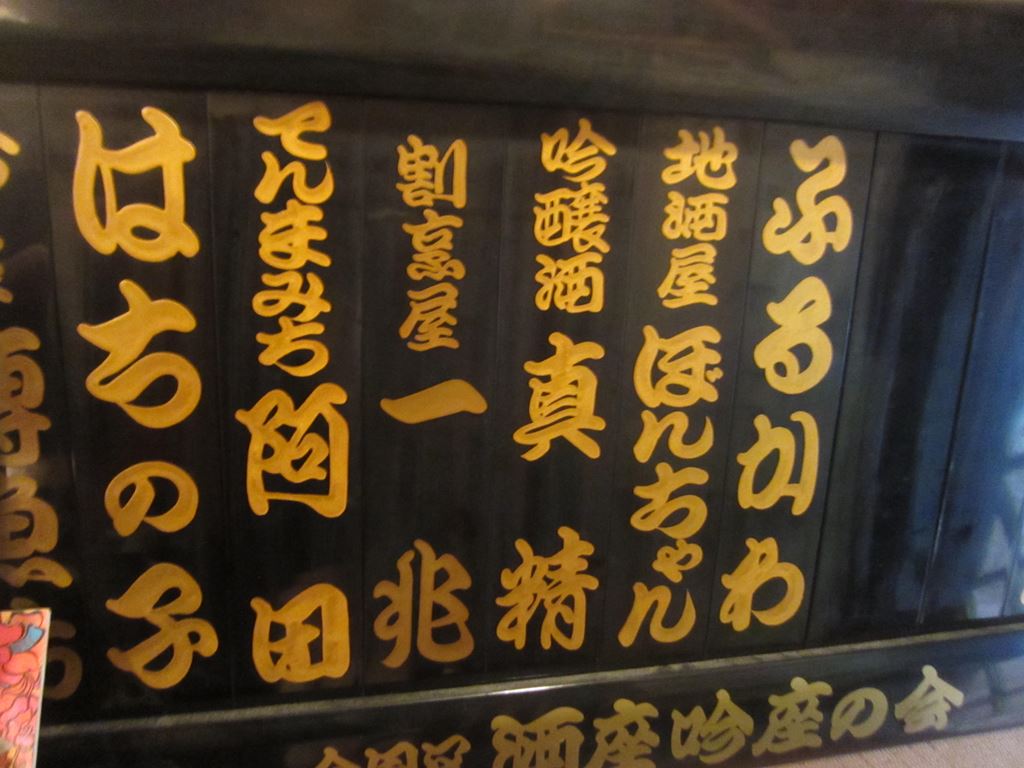 ふるかわ
地酒屋 ぼんちゃん
吟醸酒 真精
割烹屋 一兆
てんまみち 阿田
はちの子
酒座吟座の会